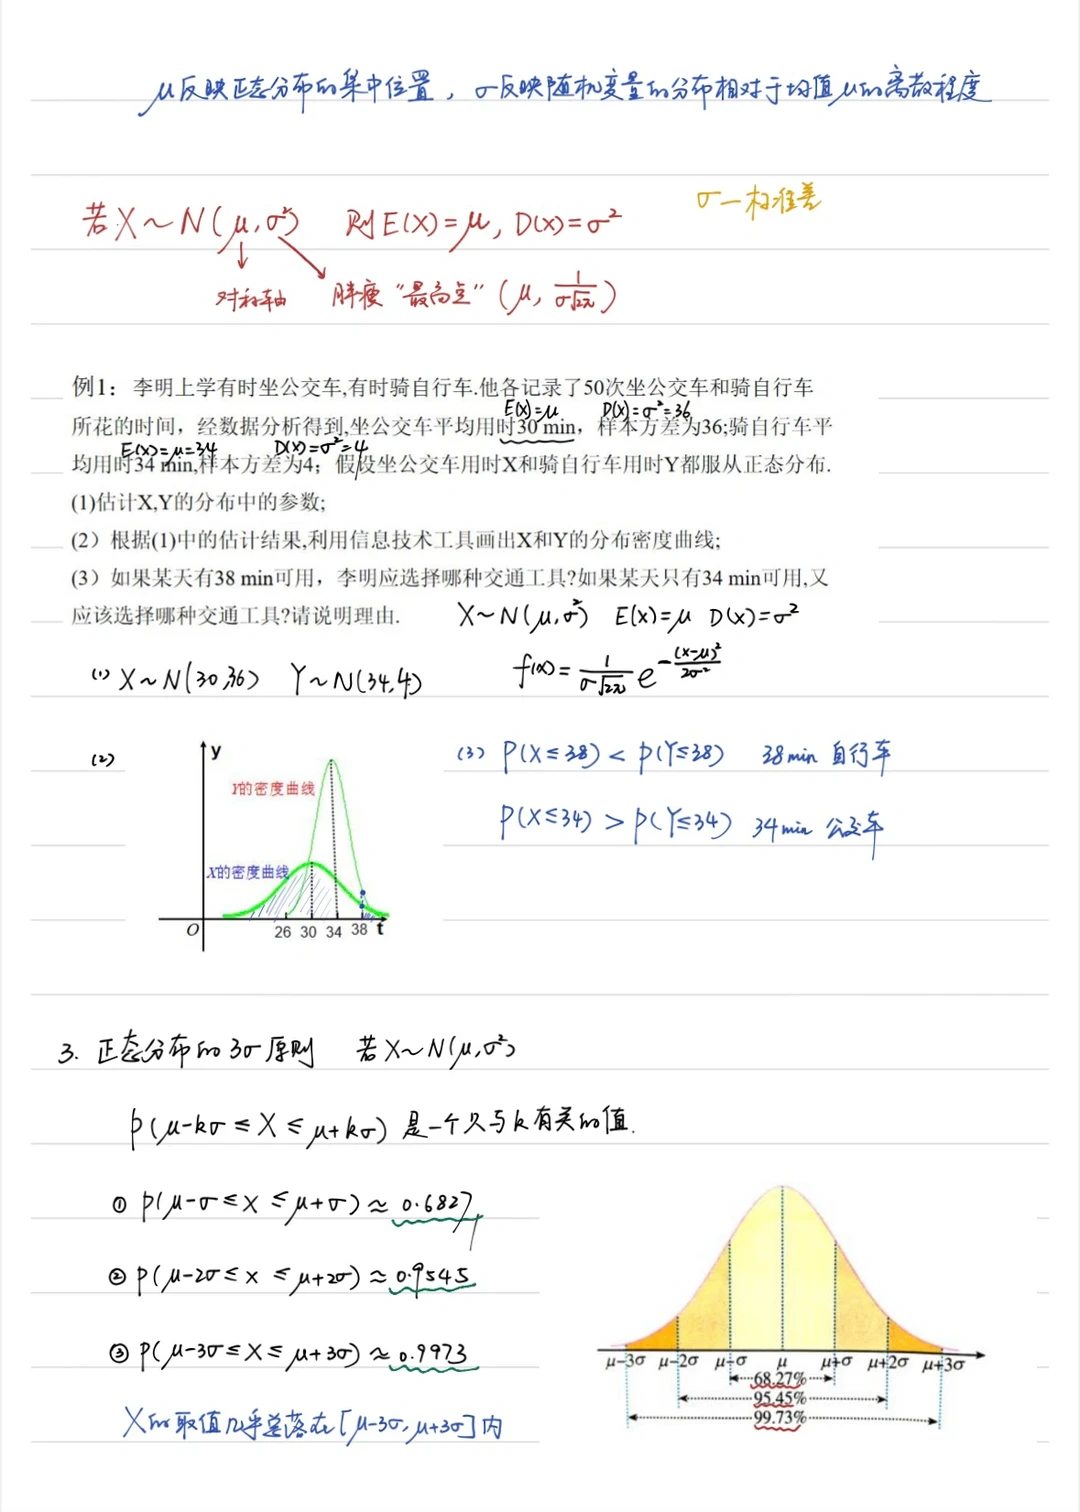 μ反映正态分布的集中位置，σ反映随机变量的分布相对于均值μ的离散程度
σ—标准差
若X~N(μ,σ²) 则E(X)=μ, D(X)=σ²
对称轴 胖瘦 “最高点” (μ, 1/(σ√2π))
例1：李明上学有时坐公交车,有时骑自行车.他各记录了50次坐公交车和骑自行车
E(X)=μ D(X)=σ²=36
所花的时间，经数据分析得到,坐公交车平均用时30 min，样本方差为36;骑自行车平
E(X)=μ=34 D(X)=σ²=4
均用时34 min,样本方差为4；假设坐公交车用时X和骑自行车用时Y都服从正态分布.
(1)估计X,Y的分布中的参数;
(2）根据(1)中的估计结果,利用信息技术工具画出X和Y的分布密度曲线;
(3）如果某天有38 min可用，李明应选择哪种交通工具?如果某天只有34 min可用,又
应该选择哪种交通工具?请说明理由.
X~N(μ,σ²) E(X)=μ D(X)=σ²
(1) X~N(30,36) Y~N(34,4)
f(x)=1/(σ√2π) e^(-(x-μ)²/2σ²)
(2)
y
Y的密度曲线
X的密度曲线
O 26 30 34 38 t
(3) P(X≤38) < P(Y≤38) 38min 自行车
P(X≤34) > P(Y≤34) 34min 公交车
3. 正态分布的3σ原则 若X~N(μ,σ²)
P(μ-kσ≤X≤μ+kσ) 是一个只与k有关的值.
① P(μ-σ≤X≤μ+σ)≈0.6827
② P(μ-2σ≤x≤μ+2σ)≈0.9545
③ P(μ-3σ≤X≤μ+3σ)≈0.9973
X的取值几乎总落在[μ-3σ, μ+3σ]内
μ-3σ μ-2σ μ-σ μ μ+σ μ+2σ μ+3σ
68.27%
95.45%
99.73%